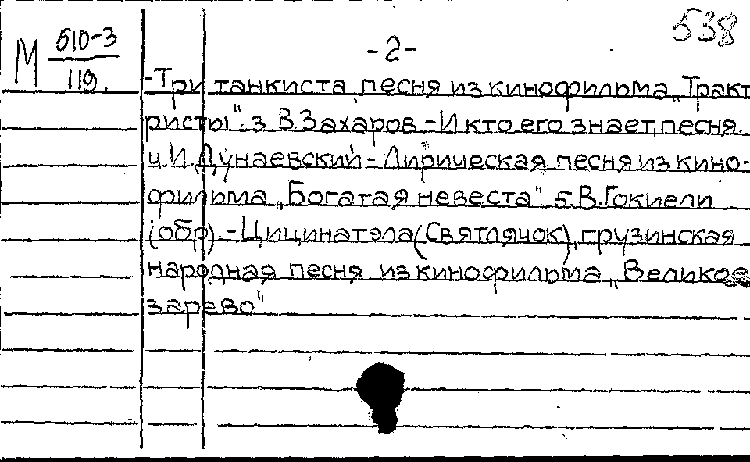 538
М 510-3
119.
-2-
-Три танкиста, песня из кинофильма „Тракт
ристы". 3. В. Захаров - И кто его знает, песня.
4. И. Дунаевский - Лирическая песня из кино-
фильма „Богатая невеста". 5. В. Гокиели
(обр). - Цицинатэла (Святлячок), грузинская
народная песня из кинофильма „Великое
зарево"